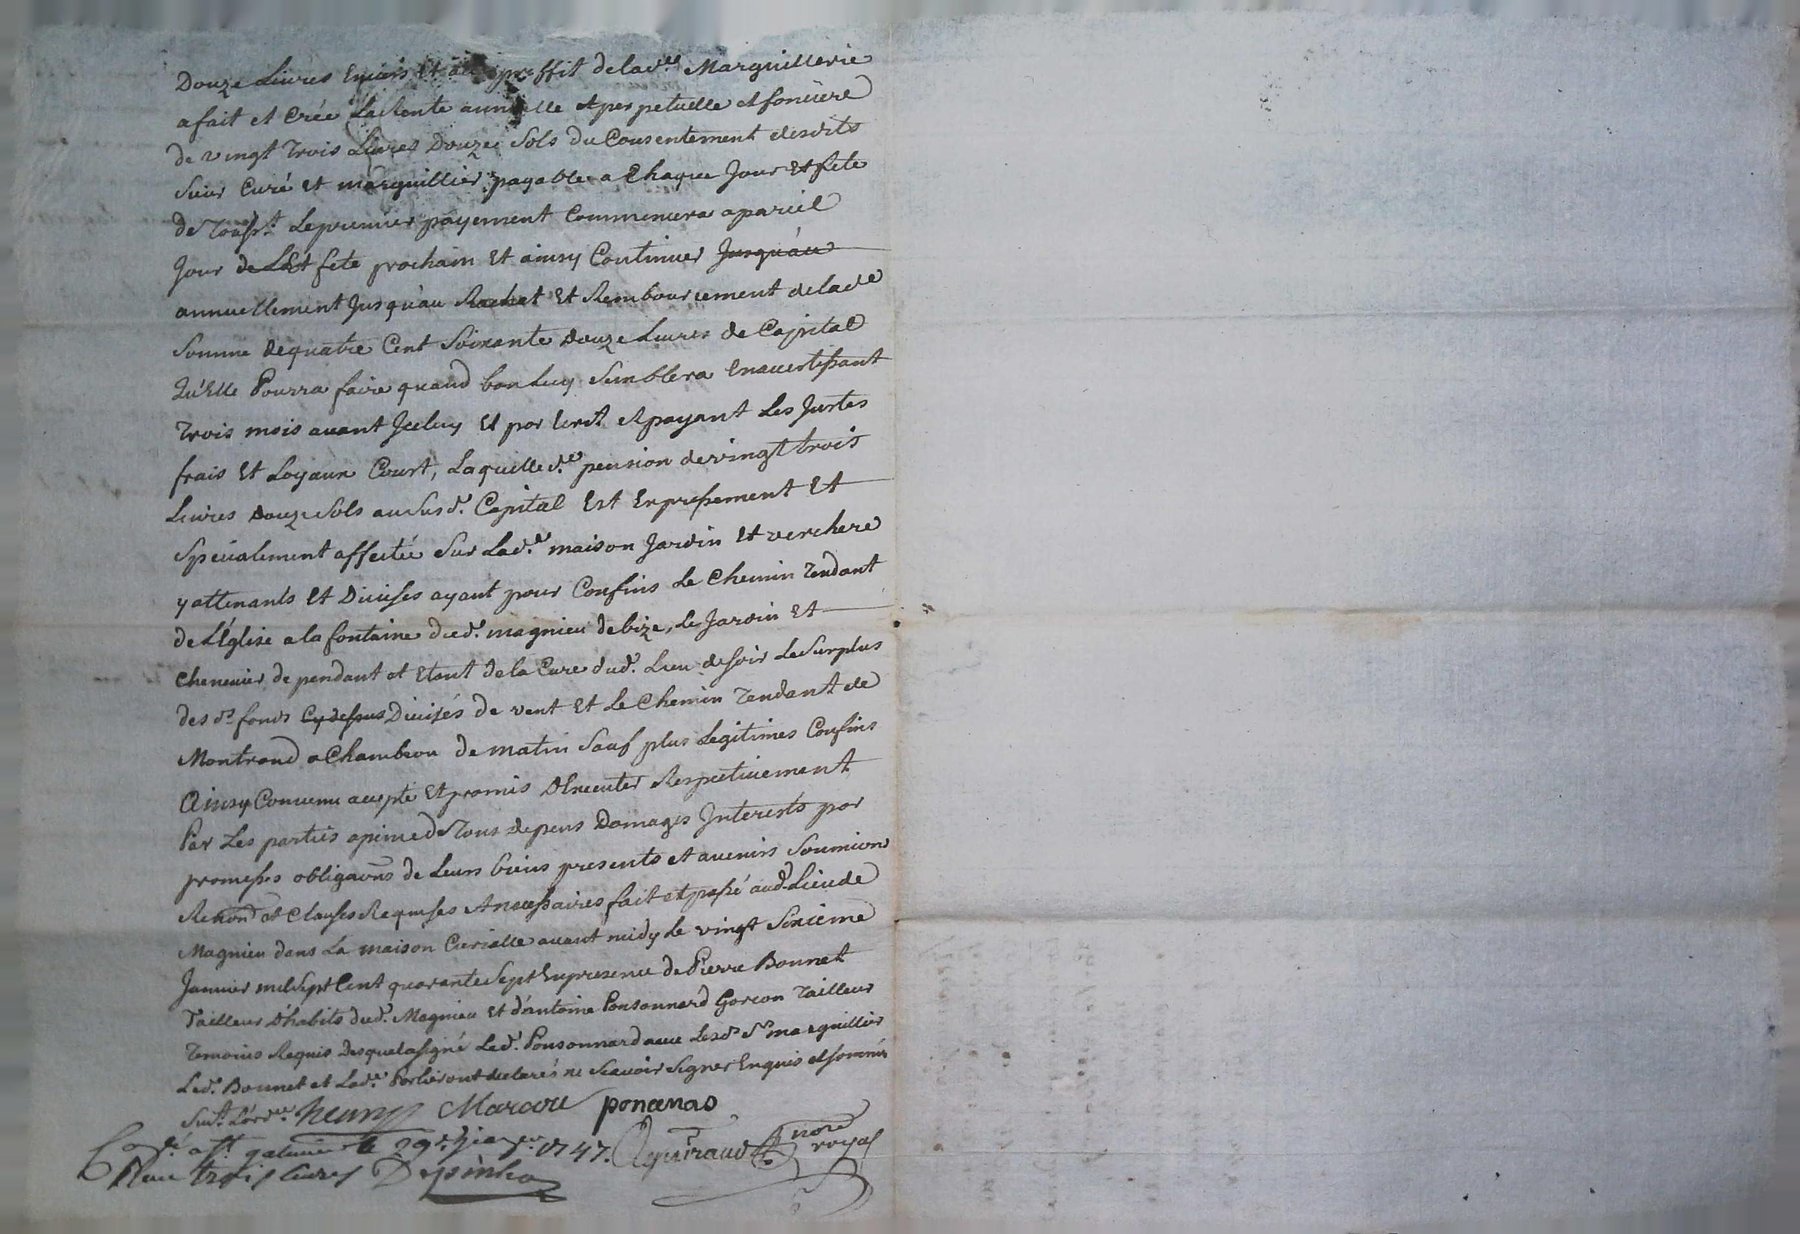 Douze Livres Envers Et au proffit delad.e Marguillerie
a fait et Créé La Rente annuelle et perpetuelle et fonciere
de vingt Trois Livres Douze Sols du Consentement desdits
Sieur Curé Et marguillier payable a Chaque Jour Et fete
de Le premier payement Commencera a pareil
Jour fete prochain Et ainsy Continuer Jusqu'au
annuellement Jusqu'au Rachat Et Remboursement delad.e
Somme de quatre Cent Soixante Douze Livres de Capital
Qu'elle Pourra faire quand bon Luy Semblera En avertissant
Trois mois avant Jceluy Et par Ecrit et payant Les Justes
frais Et Loyaux Court, Laquelle d.e pension de vingt trois
Livres Douze Sols au Susd. Capital Est Expressement Et
Specialement affectée Sur Lad.e maison Jardin Et verchere
y attenants Et Divises ayant pour Confins Le Chemin Tendant
de L'Église a la fontaine dud. magnieu de bize, Le Jardin Et
Chenevier dependant et Etant de la Cure dud. Lieu de soir Le Surplus
des d.s fonds Cy dessus Divisés de vent Et Le Chemin Tendant de
Montrond a Chambeon de matin Sauf plus Legitimes Confins
Ainsy Convenu accepté Et promis D'Executer Respectivement
Par Les parties a peine de Tous depens Domages Interests par
promesses obligaons de Leurs biens presents et avenirs Soumions
Renond et Clauses Requises et necessaires fait et passé aud. Lieu de
Magnieu dans La maison Curialle avant midy Le vingt Sixieme
Janvier mil Sept Cent quarante Sept En presence de Pierre Bonnet
Tailleur D'habits dud. Magnieu Et d'antoine Ponsonnard Garcon Tailleur
Temoins Requis Desquels a signé Led. Ponsonnard avec Lesd.s S.rs marguillier
Led. Bonnet et Lad.e ont declarés ne Scavoir Signer Enquis et sommés
Suiv.t L'ord.ce henry Marcou ponsonard
1747. Not.re
royal
Reçu trois livres